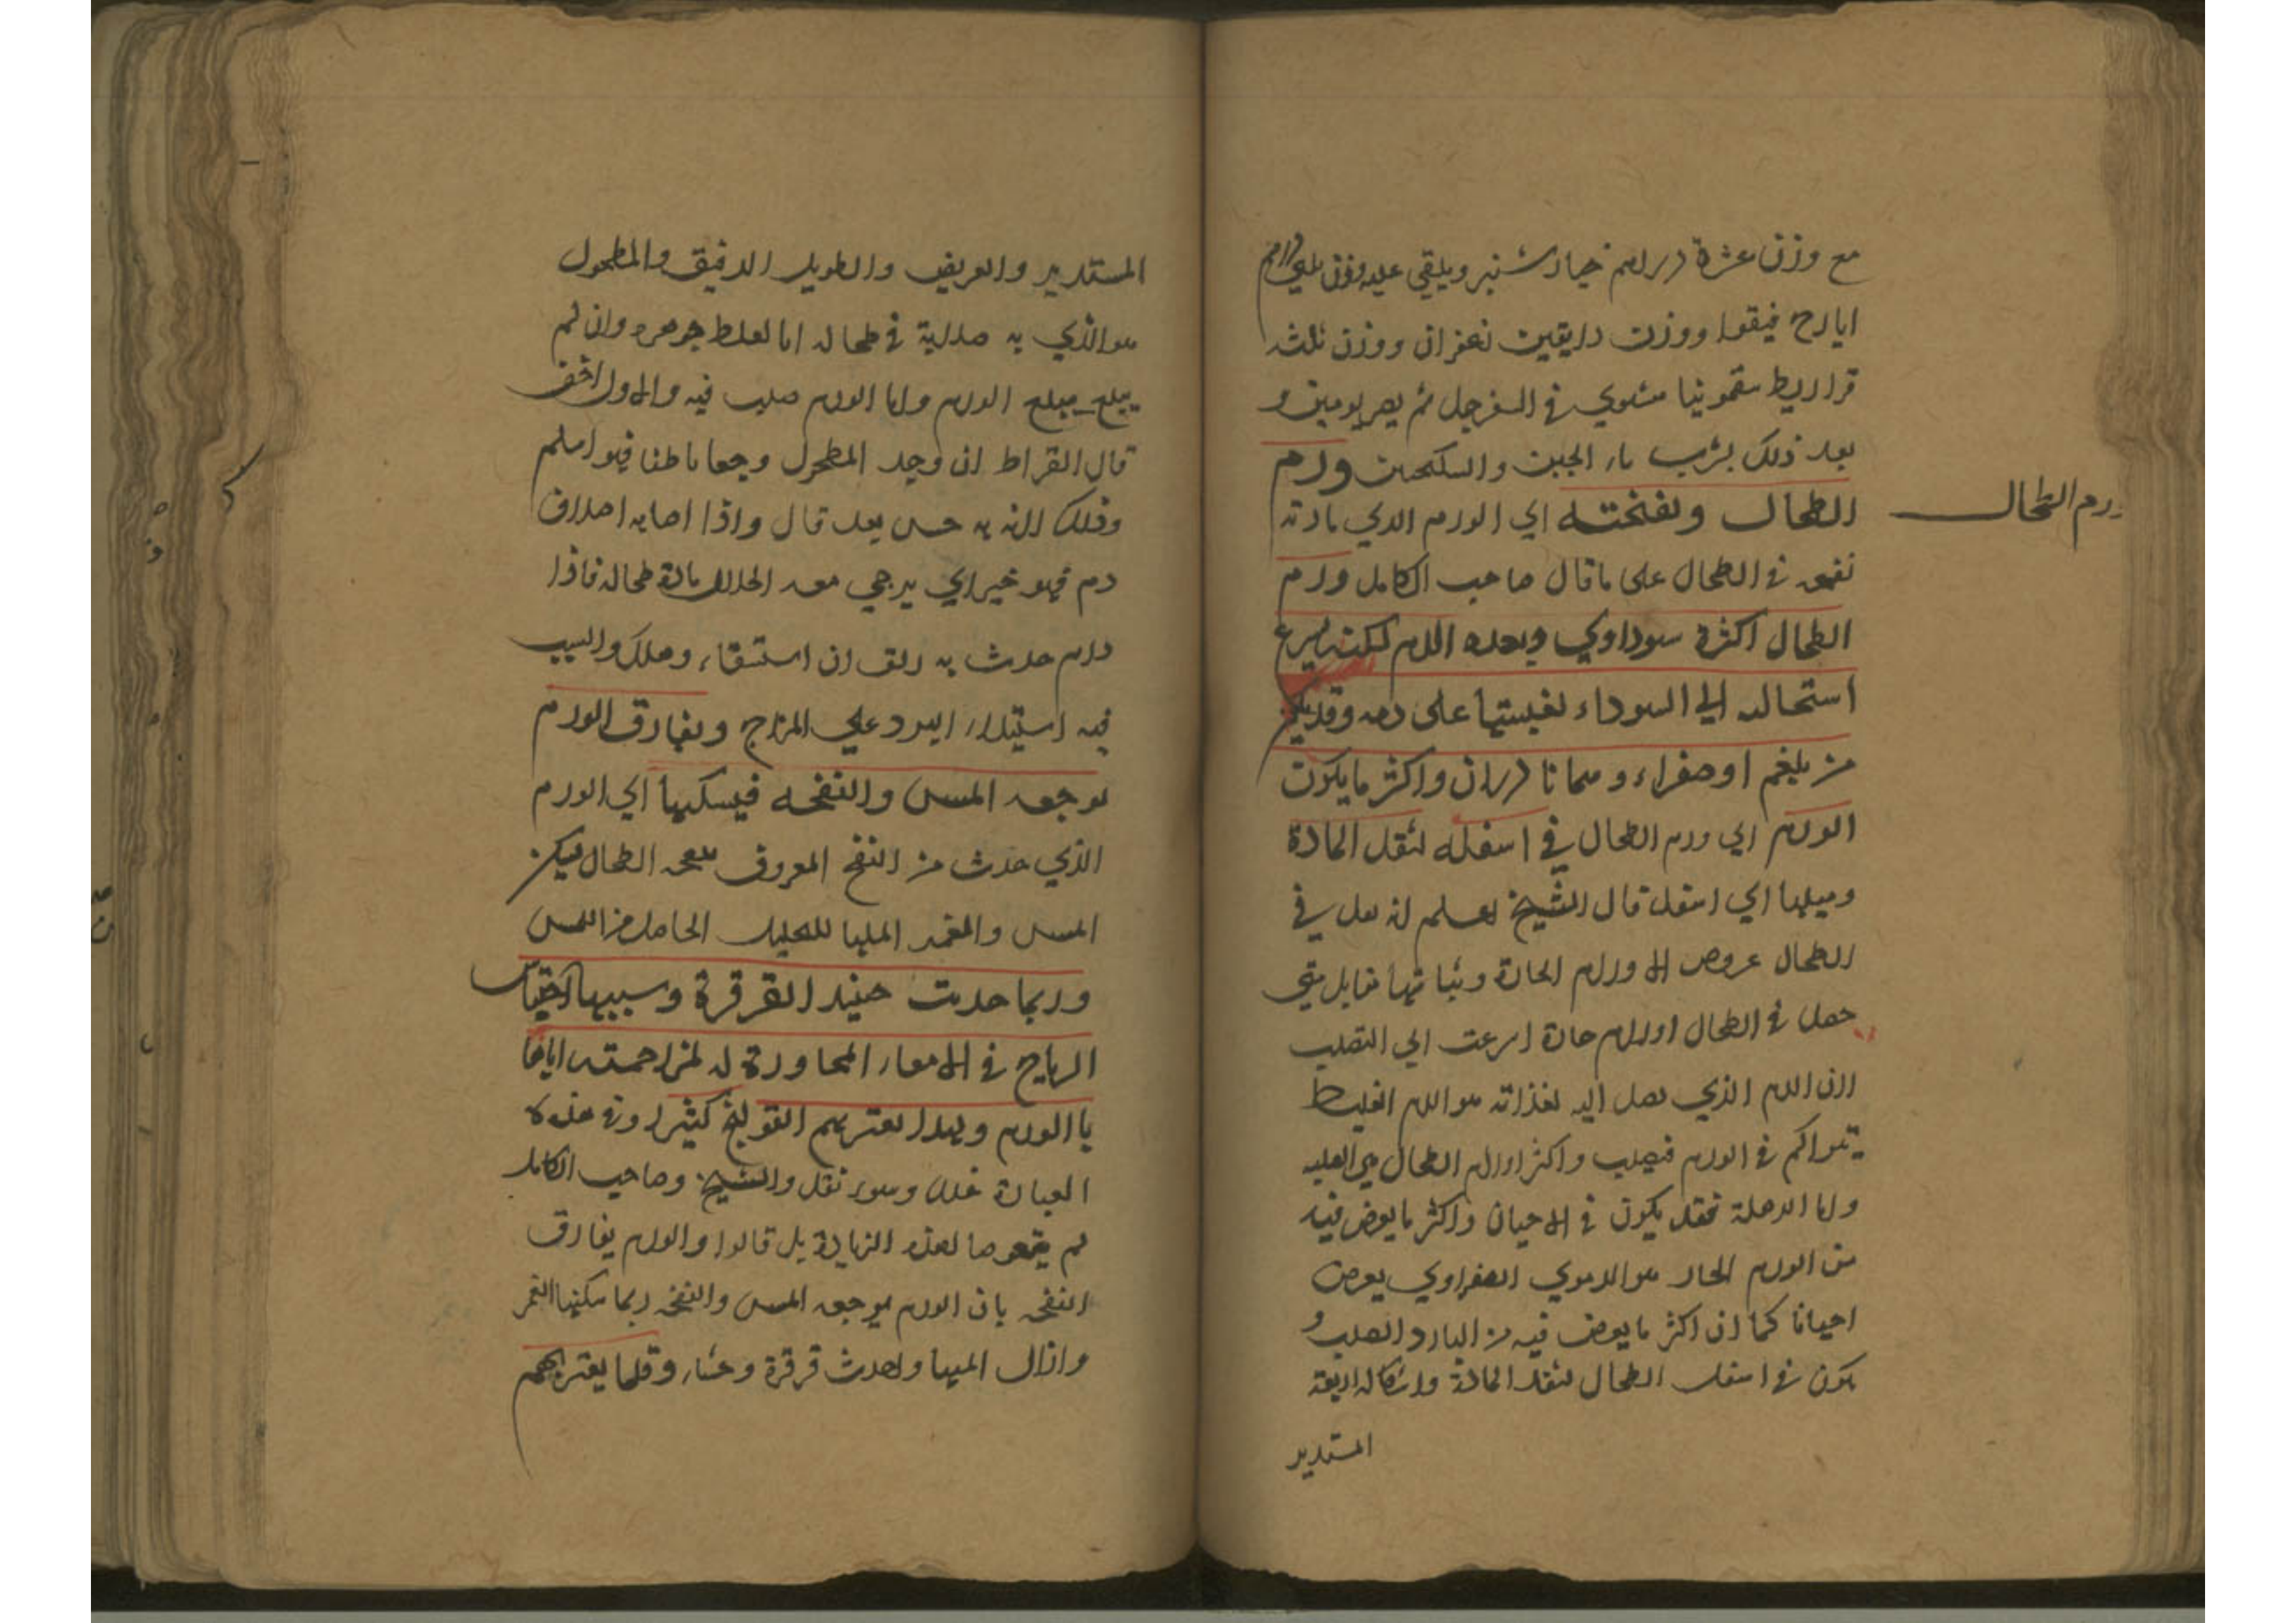 مع وزن عشرة دراهم خيار شنبر ويلقي عليه وزن
ايارج فيقرا ووزن دانقين زعفران ووزن ثلث
قراريط سقمونيا مشوي في السفرجل ثم يصر يومين و
بعد ذلك بشرب ماء الجبن والسكنجبين ورم
الطحال ونفخته اي الورم الذي مادته
ورم الطحال
نفخه في الطحال على ما قال صاحب الكامل ورم
الطحال اكثره سوداوي وبعده الدم لكنه يسرع
استحالته الي السوداء لغلبتها على دمه وقد يكون
من بلغم او صفراء وهما نادران واكثر ما يكون
الورم اي ورم الطحال في اسفله لثقل المادة
وميلها الي اسفل قال الشيخ في
الطحال عروض الاورام الحادة وثباتها متي
حصل في الطحال اورام حادة اسرعت الي التصلب
لان الدم الذي يصل اليه لغذائه هو الدم الغليظ
يتراكم في الورم فيصلب واكثر اورام الطحال هي الصلبه
واما الرهلة فقد يكون في الاحيان واكثر ما يعرض فيه
من الورم الحار هو الدموي الصفراوي يعرض
احيانا كما ان اكثر ما يعرض فيه من البارد الصلب و
يكون في اسفل الطحال لثقل المادة واشكاله اربعة
المستدير
المستدير والعريض والطويل الدقيق والمطحول
هو الذي به صلابة في طحاله اما لغلظ جوهره وان لم
يبلغ مبلغ الورم واما الورم صلب فيه والاول اخف
قال ابقراط ان وجد المطحول وجعا باطنا فهو اسلم
وذلك لانه به حس بعد قال واذا اصابه اختلاف
دم فهو خير اي يرجي معه انحلال مادة طحاله فاذا
دام حدث به زلق او استسقاء وهلك والسبب
فيه استيلاء البرد علي المزاج ويفارق الورم
بوجعه المس والنفخه فيسكنها اي الورم
الذي حدث من النفخ المعروف بنفخه الطحال
المس والغمز للتحليل الحاصل من اللمس
وربما حدثت حينئذ القرقرة وسببها احتباس
الرياح في الامعاء المجاورة له لمزاحمته اياها
بالورم ولهذا يعتريهم القولنج كثيرا وفي هذه
العبارة خلل وسوء نقل والشيخ وصاحب الكامل
لم يتعرضا لهذه الزيادة بل قالوا والورم يفارق
النفخه بان الورم يوجعه المس والنفخه ربما سكنها الغمز
وازال المها واحدث قرقرة وجشاء وقلما يعتريهم